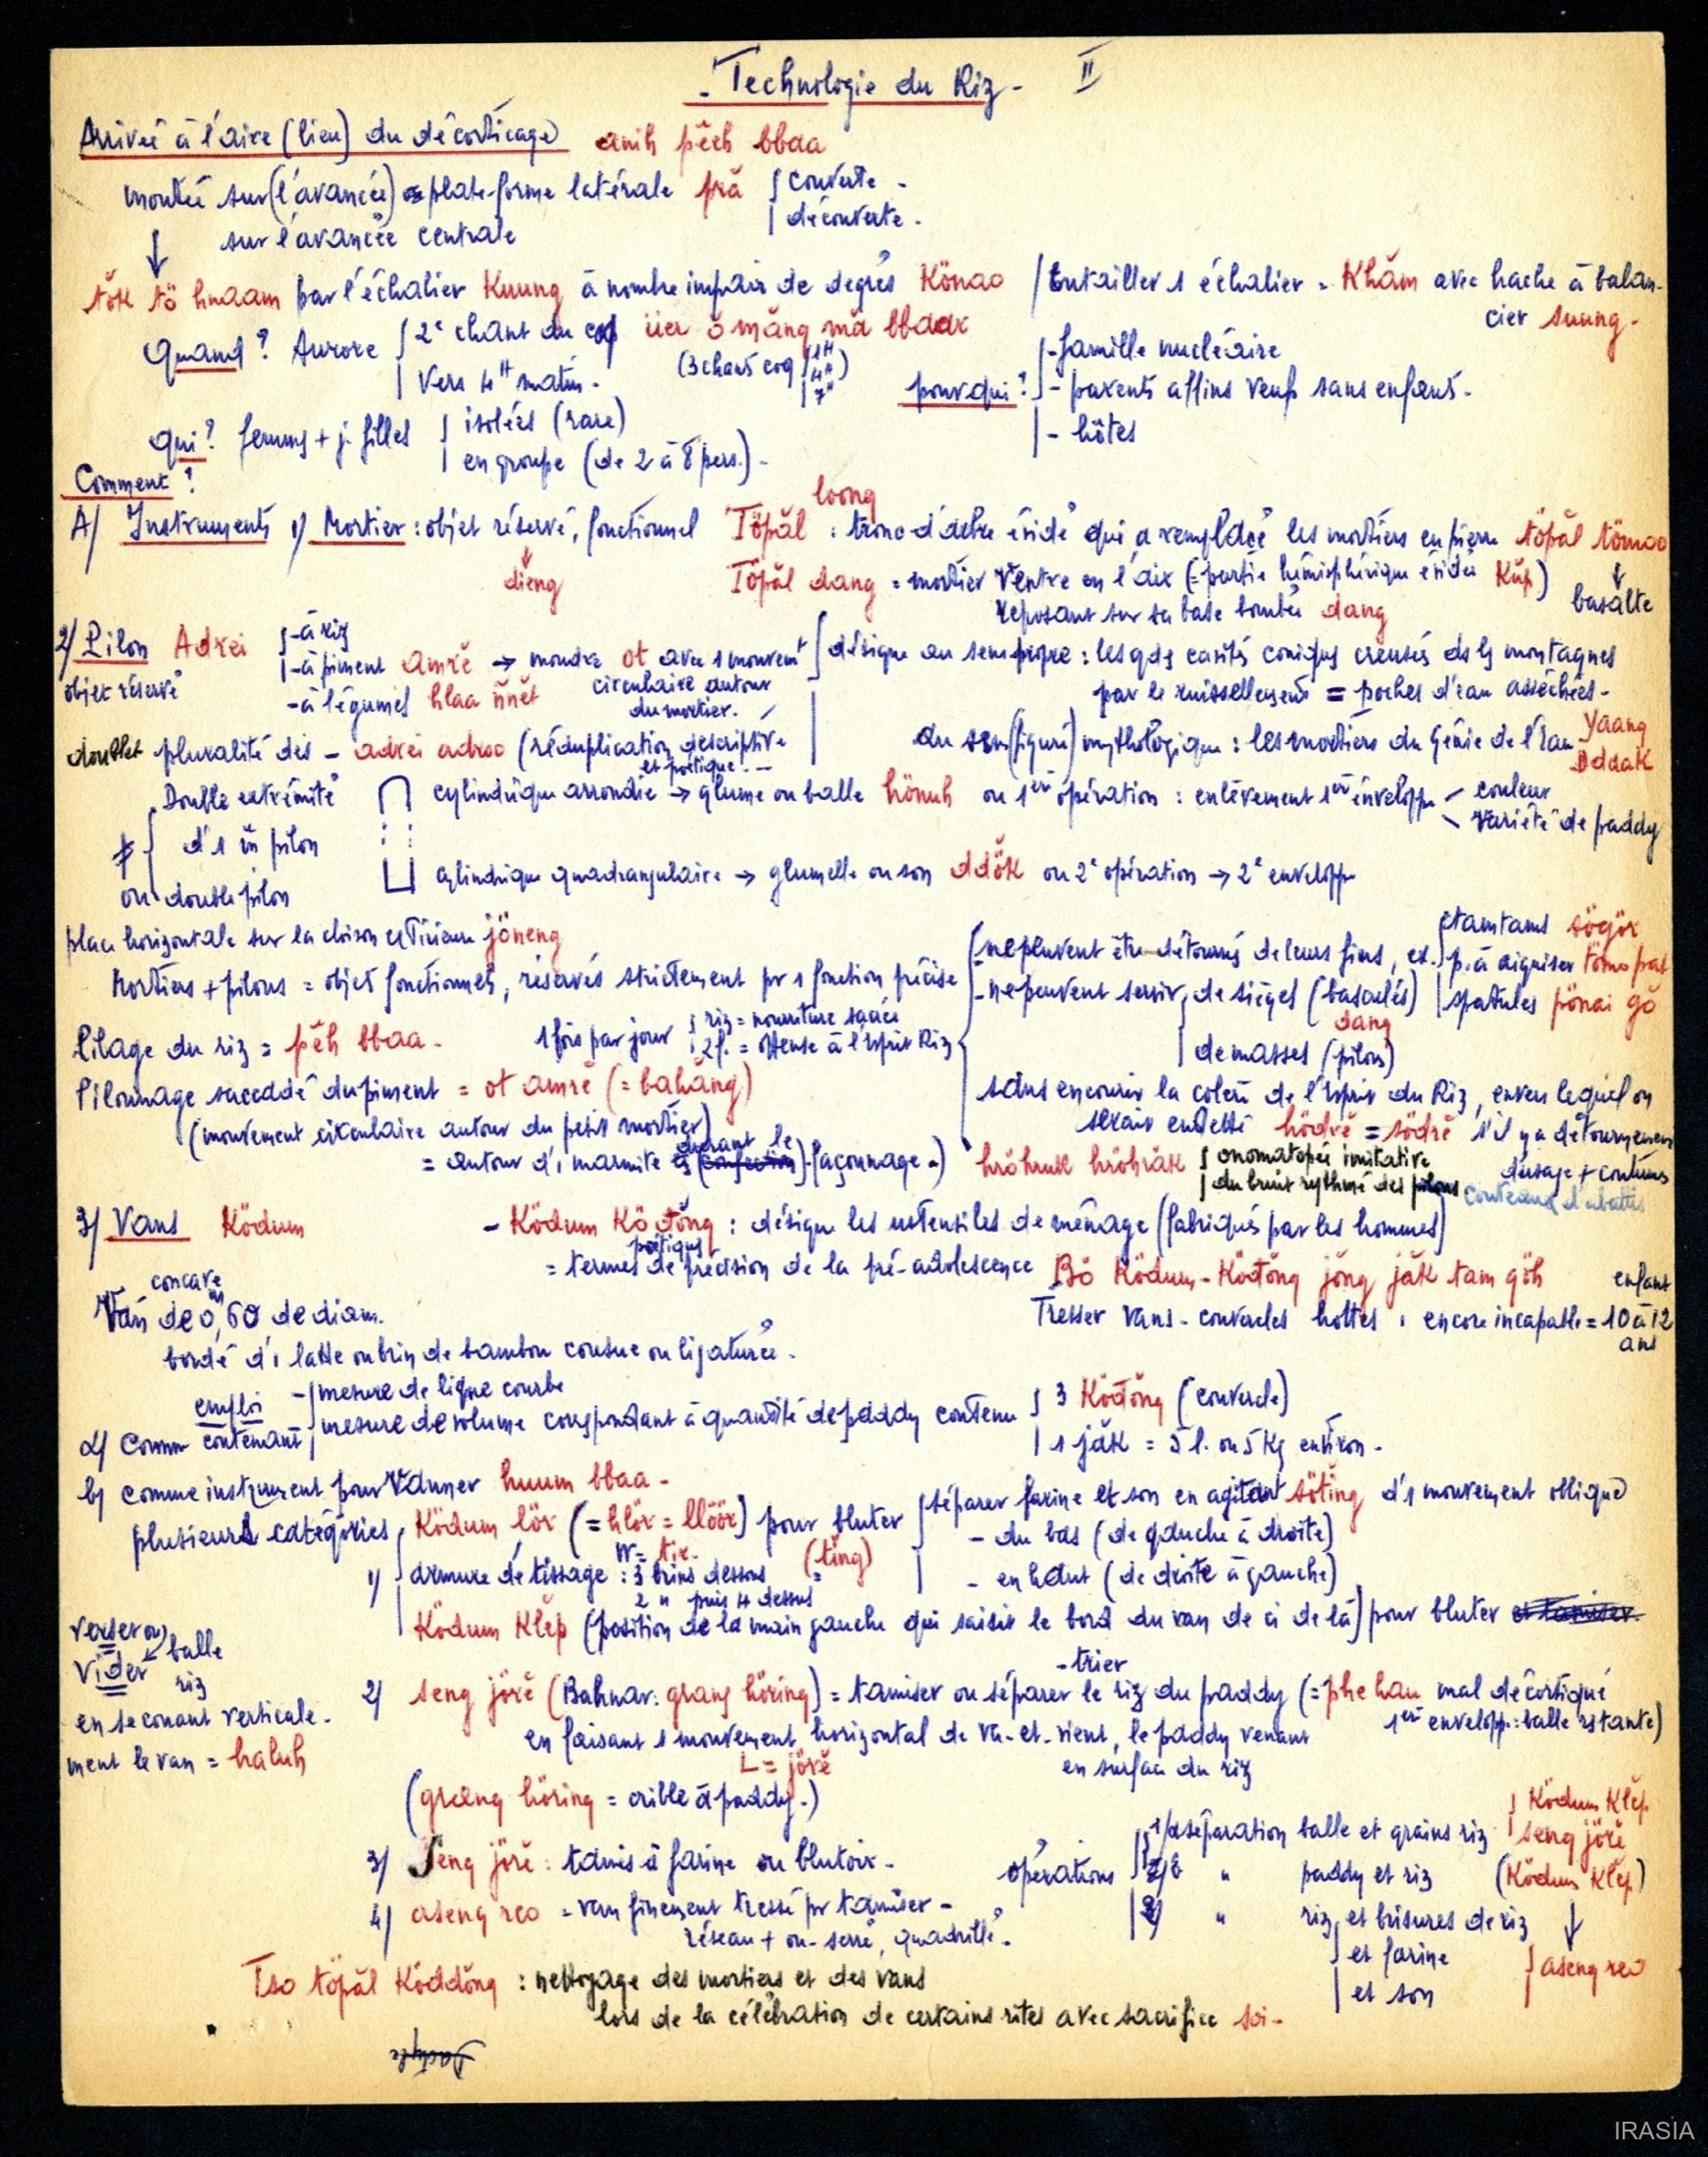 - Technologie du Riz - II
Arrivée à l'aire (lieu) du décorticage anih pĕeh bbaa
montée sur (l'avancée) plate-forme latérale pră { couverte -
découverte.
sur l'avancée centrale
↓
tŏk tö hnaam par l'échalier Kuung à nombre impair de degrés Könao / Entailler 1 échalier = Khăm avec hache à balan-
cier suung.
Quand ? Aurore { 2e chant du coq üer ŏ măng mă bbaar
(3 chants coq { 1H 4H 7H )
Vers 4H matin.
pour qui ? { - famille nucléaire
- parents affins veufs sans enfants.
- hôtes
Qui ? femmes + j. filles { isolées (rare)
en groupe (de 2 à 8 pers.) -
Comment ?
A/ Instruments 1/ Mortier : objet réservé, fonctionnel Töpăl loong : tronc d'arbre évidé qui a remplacé les mortiers en pierre töpăl tömao
↓ dieng
↓ basalte
Töpăl dang = mortier ventre en l'air (= partie hémisphérique évidée Kŭp)
reposant sur sa base bombée dang
2/ Pilon Adrei { - à riz
- à piment amrĕ → moudre ot avec 1 mouvemt
circulaire autour
du mortier.
- à légumes hlaa ñnĕt
objet réservé
{ désigne au sens propre : les gdes cavités coniques creusées ds les montagnes
par le ruissellement = poches d'eau asséchées -
au sens (figuré) mythologique : les mortiers du Génie de l'Eau Yaang
Ddaak
doublet pluralité des - adrei adrao (réduplication descriptive
et poétique. --
≠ { Double extrémité
d'1 m̂ pilon
ou double pilon
cylindrique arrondie → glume ou balle hönuh ou 1ère opération : enlèvement 1ère enveloppe < couleur
variété de paddy
cylindrique quadrangulaire → glumelle ou son ddŏk ou 2e opération → 2e enveloppe
place horizontale sur la cloison extérieure jöneng
Mortiers + pilons = objets fonctionnels, réservés strictement pr 1 fonction précise
{ - ne peuvent être détournés de leurs fins, ex. { tamtams sögör
p. à aiguiser tömo pat
spatules pönai gŏ
- ne peuvent servir { de sièges (basculés)
dang
de masses (pilon)
sans encourir la colère de l'Esprit du Riz, envers lequel on
serait endetté hödrĕ = södrĕ s'il y a détournement
d'usage + coutumes
Pilage du riz = pĕh bbaa -
1 fois par jour { riz = nourriture sacrée
2 f. = offense à l'Esprit Riz
Pilonnage saccadé du piment = ot amrĕ (= bahăng)
(mouvement circulaire autour du petit mortier)
= autour d'1 marmite durant le façonnage.)
hröhruk hröhrăk { onomatopée imitative
du bruit rythmé des pilons
3/ Vans Ködum
- Ködum Ködŏng : désigne les ustensiles de ménage (fabriqués par les hommes)
poétiques
= termes de précision de la pré-adolescence Bö Ködum - Ködŏng jŏng jăk tam gŏh
enfant
Tresser vans - couvercles hottes, encore incapable = 10 à 12
ans
concave
Van de 0m,60 de diam.
bordé d'1 latte ou brin de bambou cousue ou ligaturée.
emploi
a/ Comme contenant { - mesure de ligne courbe
mesure de volume correspondant à quantité de paddy contenu { 3 Ködŏng (couvercle)
1 jăk = 5 l. ou 5 Kg environ -
b/ comme instrument pour Vanner huum bbaa -
plusieurs catégories
1/ { Ködum lör (= hlör = llöör) pour bluter { séparer farine et son en agitant söting d'1 mouvement oblique
(ting)
- du bas (de gauche à droite)
- en haut (de droite à gauche)
armure de tissage : 3 brins dessous
2 " puis 4 dessus
Ködum Klĕp (position de la main gauche qui saisit le bord du van de ci de là) pour bluter et tamiser.
- trier
verser ou
vider ↙ balle
riz
en secouant verticale-
ment le van = haluh
2/ seng jörĕ (Bahnar : grang höring) = tamiser ou séparer le riz du paddy (= phe hau mal décortiqué
1ère enveloppe : balle restante)
en faisant 1 mouvement horizontal de va-et-vient, le paddy venant
L = jörĕ
en surface du riz
(graeng höring = crible à paddy.)
3/ Seng jörĕ : tamis à farine ou blutoir -
4/ aseng reo = van finement tressé pr tamiser -
réseau + ou - serré, quadrillé.
opérations { 1/a séparation balle et grains riz { Ködum Klĕp
seng jörĕ
b " paddy et riz (Ködum Klĕp)
2/ " riz { et brisures de riz
et farine
et son
↓
} aseng reo
Tso töpăl Köddŏng : nettoyage des mortiers et des vans
lors de la célébration de certains rites avec sacrifice soi -
IRASIA